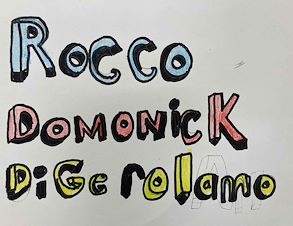 Rocco
DomonicK
DiGe rolamo